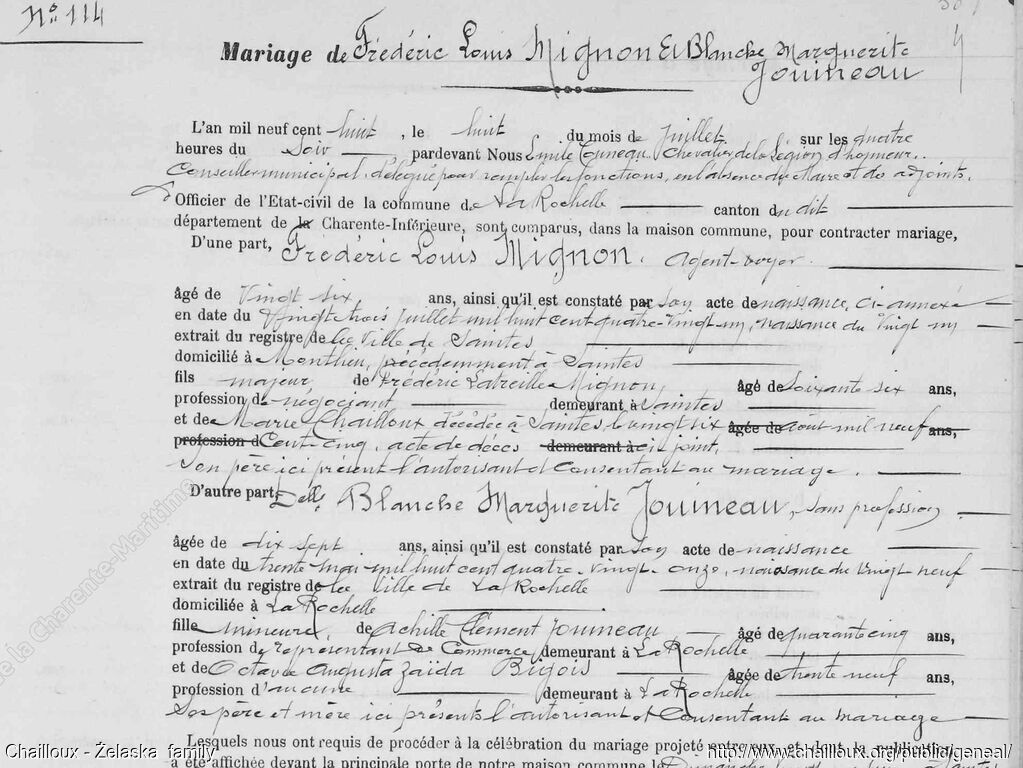 N° 114
Mariage de Frédéric Louis Mignon Et Blanche Marguerite
Jouineau
L'an mil neuf cent huit, le huit du mois de Juillet sur les quatre
heures du Soir pardevant Nous Emile Couneau, Chevalier de la Légion d'honneur,
Conseiller municipal, délégué pour remplir les fonctions, en l'absence du Maire et des adjoints.
Officier de l'Etat-civil de la commune de La Rochelle canton dudit
département de la Charente-Inférieure, sont comparus, dans la maison commune, pour contracter mariage,
D'une part, Frédéric Louis Mignon, agent-voyer
âgé de Vingt six ans, ainsi qu'il est constaté par son acte de naissance, ci-annexé
en date du Vingt trois Juillet mil huit cent quatre-vingt-un, naissance du Vingt un
extrait du registre de la Ville de Saintes
domicilié à Montlieu, précédemment à Saintes
fils majeur, de Frédéric Latreille Mignon, âgé de Soixante six ans,
profession de négociant demeurant à Saintes
et de Marie Chailloux décédée à Saintes, le vingt six âgée de août mil neuf ans,
profession d Cent cinq, acte de décès demeurant à ci joint,
Son père ici présent l'autorisant et Consentant au mariage.
D'autre part, Delle Blanche Marguerite Jouineau, sans profession
âgée de dix sept ans, ainsi qu'il est constaté par son acte de naissance
en date du trente mai mil huit cent quatre-vingt-onze, naissance du Vingt neuf
extrait du registre de la Ville de La Rochelle
domiciliée à La Rochelle
fille mineure, de Achille Clément Jouineau âgé de quarante cinq ans,
profession de représentant de Commerce demeurant à La Rochelle
et de Octavie Augusta Zaïda Bigois âgée de trente neuf ans,
profession d'aucune demeurant à La Rochelle
Ses père et mère ici présents l'autorisant et Consentant au mariage
Lesquels nous ont requis de procéder à la célébration du mariage projeté entre eux et dont la publication
a été affichée devant la principale porte de notre maison commune le Dimanche
de la Charente-Maritime
Chailloux - Żelaska family
http://www.chailloux.org/public/geneal/